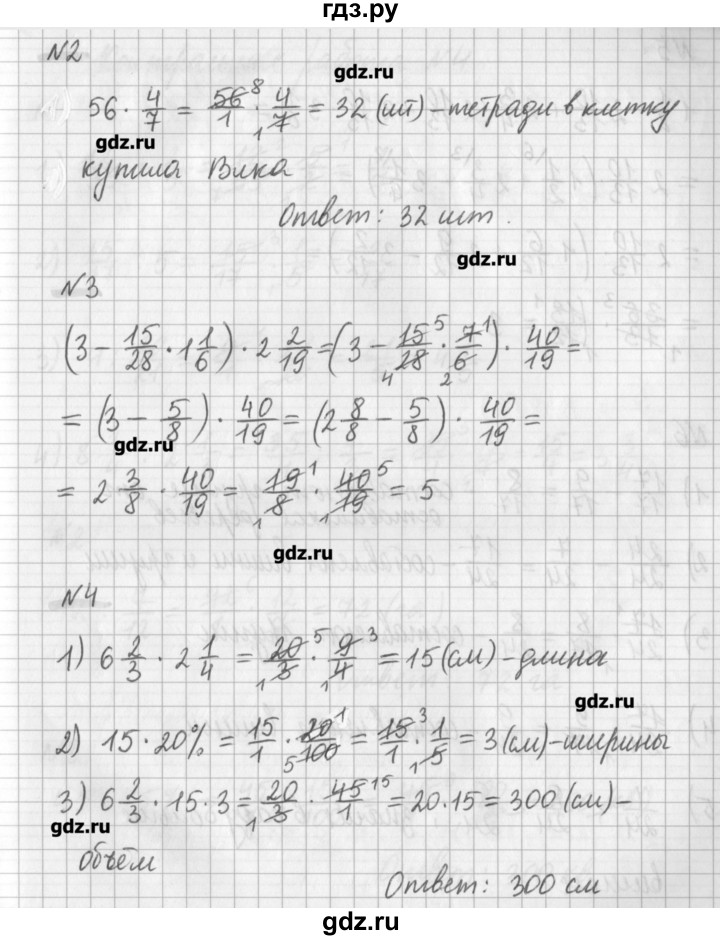 гдз.ру
№2
gdz.ru
56 · 4/7 = 56/1 8 · 4/7 1 = 32 (шт) – тетради в клетку
gdz.ru
купила Вика
Ответ: 32 шт.
gdz.ru
№3
(3 − 15/28 · 1 1/6) · 2 2/19 = (3 − 15/28 5 4 · 7/6 1 2) · 40/19 =
= (3 − 5/8) · 40/19 = (2 8/8 − 5/8) · 40/19 =
gdz.ru
= 2 3/8 · 40/19 = 19/8 1 1 · 40/19 5 1 = 5
gdz.ru
№4
1) 6 2/3 · 2 1/4 = 20/3 5 1 · 9/4 3 1 = 15 (см) – длина
gdz.ru
2) 15 · 20% = 15/1 · 20/100 1 5 = 15/1 3 · 1/5 1 = 3 (см) – ширины
3) 6 2/3 · 15 · 3 = 20/3 1 · 45/1 15 = 20 · 15 = 300 (см) –
gdz.ru
объём
Ответ: 300 см
gdz.ru